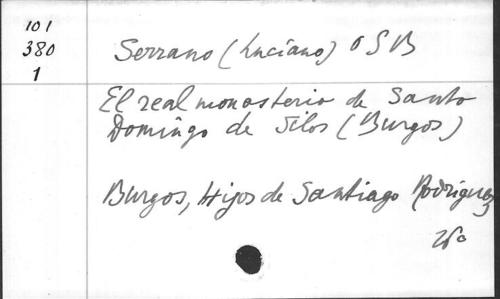 101
380
1
Serrano (Luciano) OSB
El real monasterio de Santo
Domingo de Silos (Burgos)
Burgos, Hijos de Santiago Rodriguez